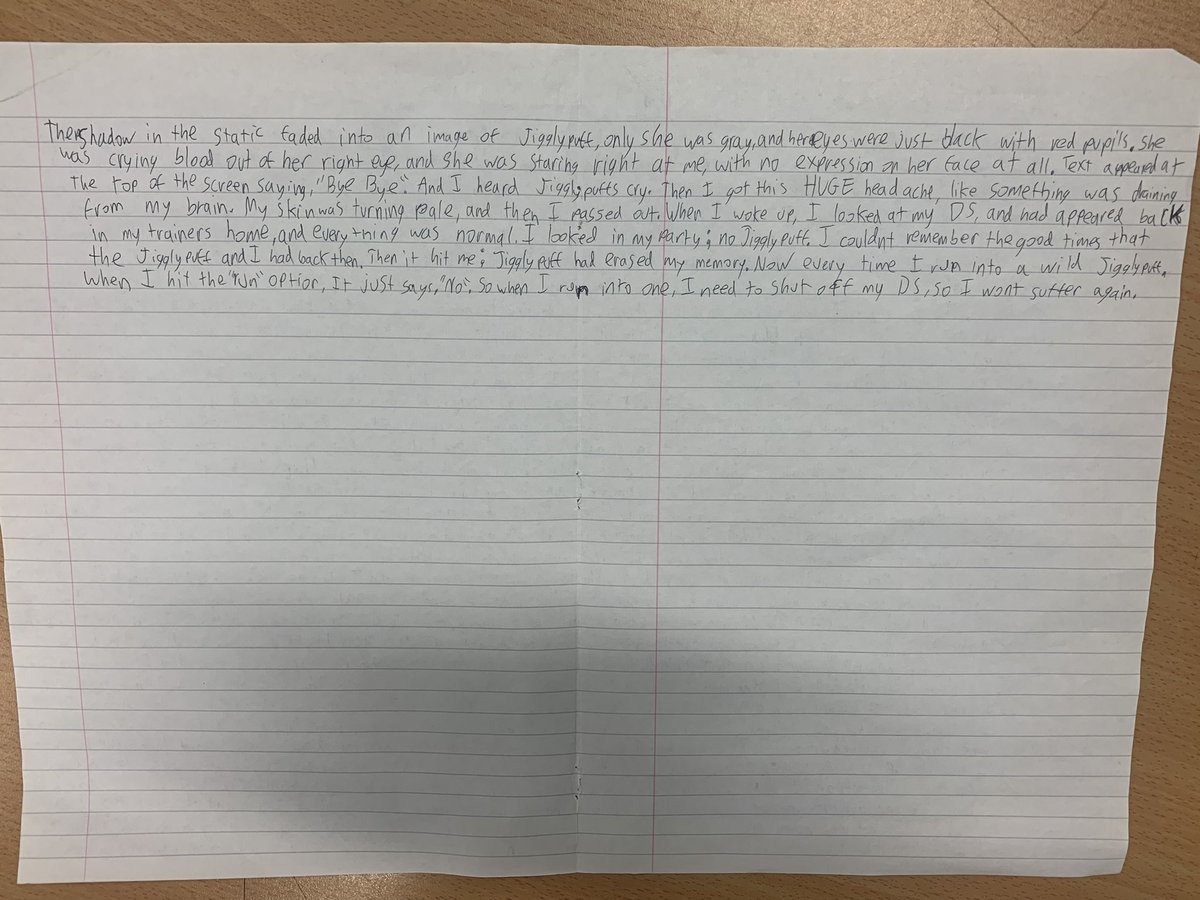 The shadow in the static faded into an image of Jigglypuff, only she was gray, and her eyes were just black with red pupils. she
was crying blood out of her right eye, and she was staring right at me, with no expression on her face at all. Text appeared at
the top of the screen saying, "Bye Bye". And I heard Jigglypuffs cry. Then I got this HUGE headache, like something was draining
from my brain. My skin was turning pale, and then I passed out. When I woke up, I looked at my DS, and had appeared back
in my trainers home, and everything was normal. I looked in my Party; no Jigglypuff. I couldnt remember the good times that
the Jigglypuff and I had back then. Then it hit me; Jigglypuff had erased my memory. Now every time I run into a wild Jigglypuff.
When I hit the "run" option, It just says, "No". So when I run into one, I need to shut off my DS, so I wont suffer again.